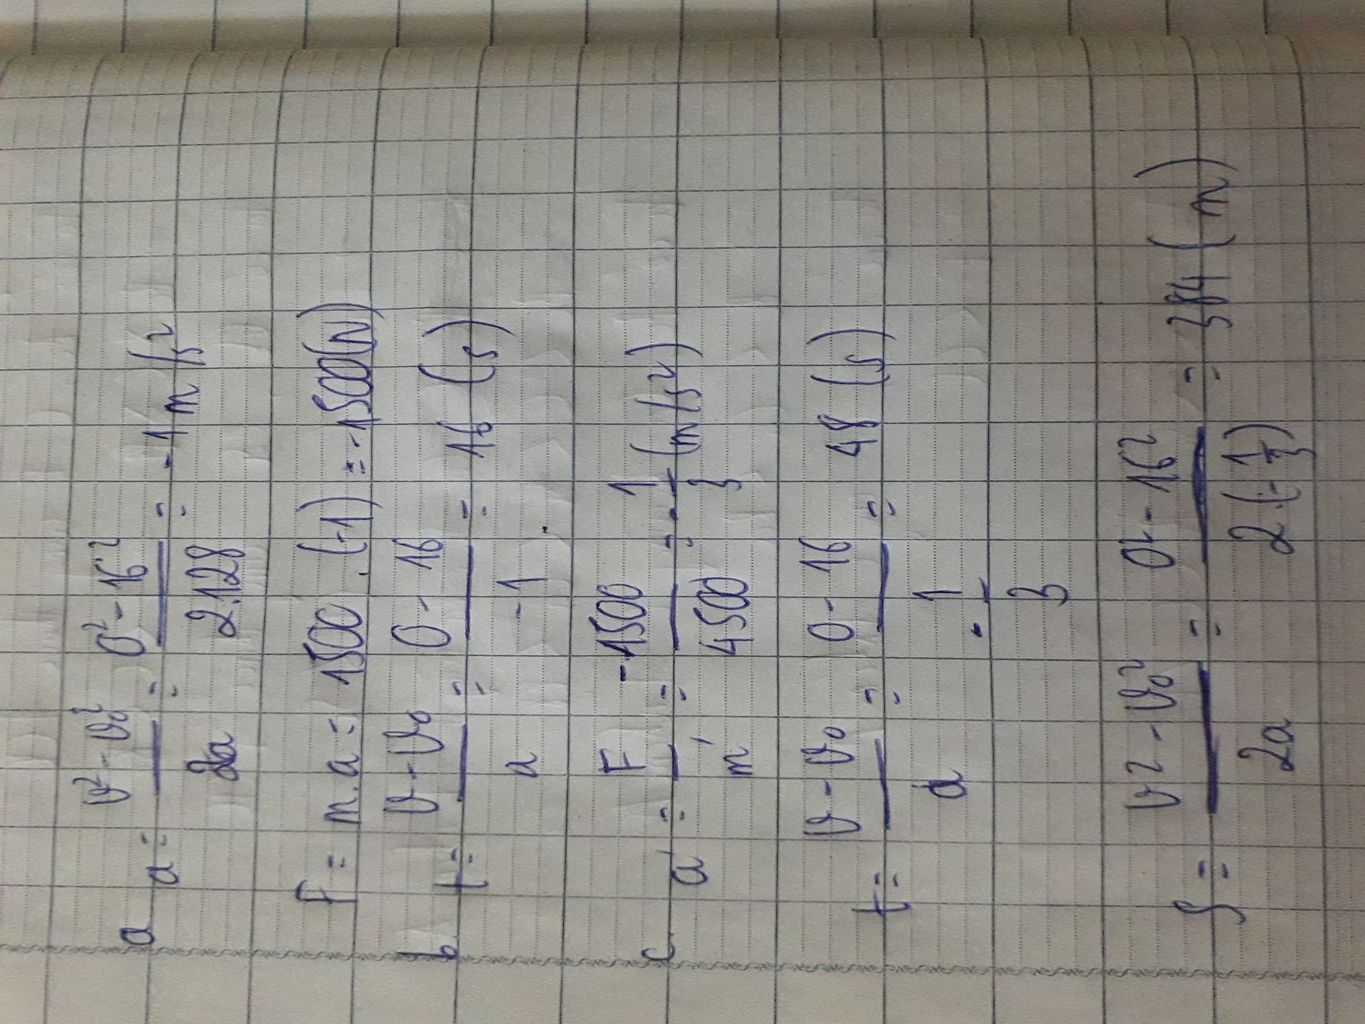 a a = v² - v₀² / 2a = 0² - 16² / 2.128 = -1 m/s²
F = m.a = 1500 . (-1) = -1500(N)
b t = v - v₀ / a = 0 - 16 / -1 = 16 (s)
c. a' = F / m' = -1500 / 4500 = -1/3 (m/s²)
t = v - v₀ / a = 0 - 16 / -1/3 = 48 (s)
S = v² - v₀² / 2a = 0² - 16² / 2.(-1/3) = 384 (m)